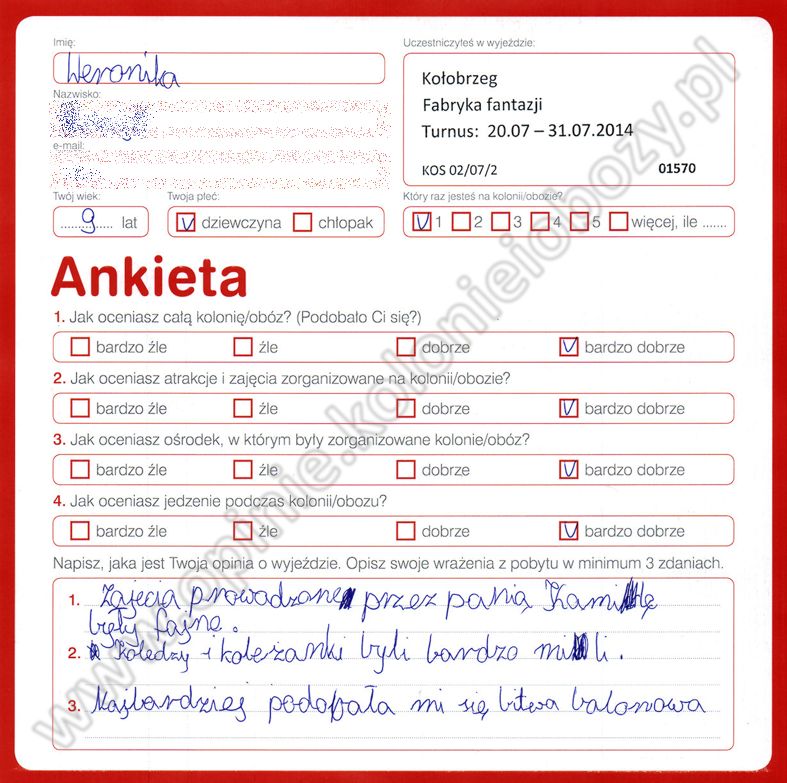 Imię:
Weronika
Nazwisko:
e-mail:
Twój wiek:
9 lat
Twoja płeć:
V dziewczyna chłopak
Uczestniczyłeś w wyjeździe:
Kołobrzeg
Fabryka fantazji
Turnus: 20.07 – 31.07.2014
KOS 02/07/2 01570
Który raz jesteś na kolonii/obozie?
V 1 2 3 4 5 więcej, ile .......
Ankieta
1. Jak oceniasz całą kolonię/obóz? (Podobało Ci się?)
bardzo źle źle dobrze V bardzo dobrze
2. Jak oceniasz atrakcje i zajęcia zorganizowane na kolonii/obozie?
bardzo źle źle dobrze V bardzo dobrze
3. Jak oceniasz ośrodek, w którym były zorganizowane kolonie/obóz?
bardzo źle źle dobrze V bardzo dobrze
4. Jak oceniasz jedzenie podczas kolonii/obozu?
bardzo źle źle dobrze V bardzo dobrze
Napisz, jaka jest Twoja opinia o wyjeździe. Opisz swoje wrażenia z pobytu w minimum 3 zdaniach.
1. Zajęcia prowadzone przez panią Kamilę
były fajne.
2. Koledzy i koleżanki byli bardzo mili.
3. Najbardziej podobała mi się bitwa balonowa
www.opinie.kolonieiobozy.pl